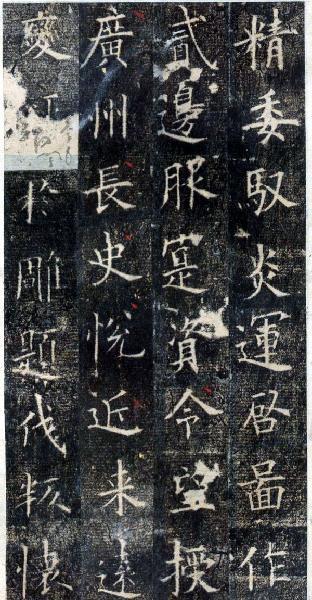 精委馭炎運啓啚作
貳邊服寔資令望授
廣州長史悅近來遠
變於雕題伐叛懷